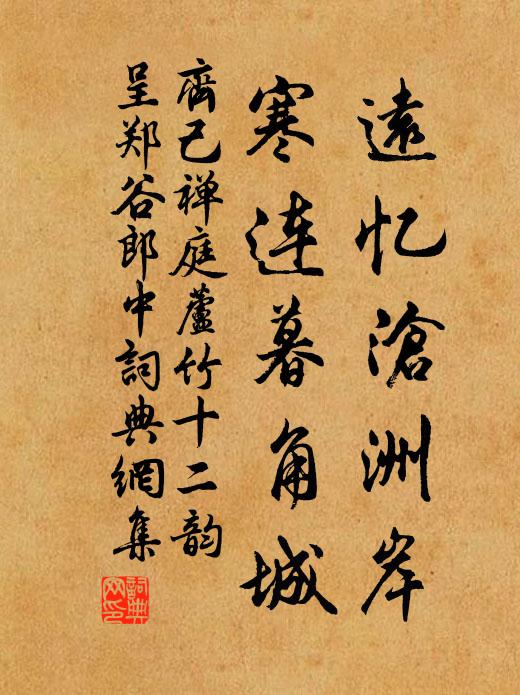 遠忆滄洲岸
寒连暮角城
齊己禅庭蘆竹十二韵
呈郑谷郎中詞典網集
詞典網印